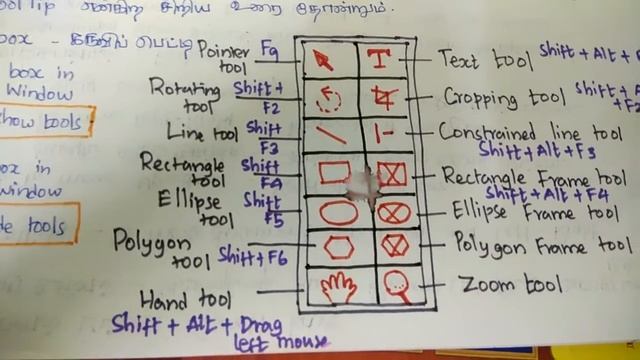 Tool Tip என்கிற சிறிய உரை தோன்றும்.
box - கருவிப் பெட்டி
box in
Window
Show tools -
box in
window
tools
Pointer tool F9
Rotating tool Shift + F2
Line tool Shift F3
Rectangle tool Shift F4
Ellipse tool Shift F5
Polygon tool Shift + F6
Hand tool
Shift + Alt + Drag
left mouse
T
Text tool Shift + Alt +
Cropping tool Shift +
+ F2
Constrained line tool
Shift + Alt + F3
Rectangle Frame tool
Shift + Alt + F4
Ellipse Frame tool
Polygon Frame tool
Zoom tool